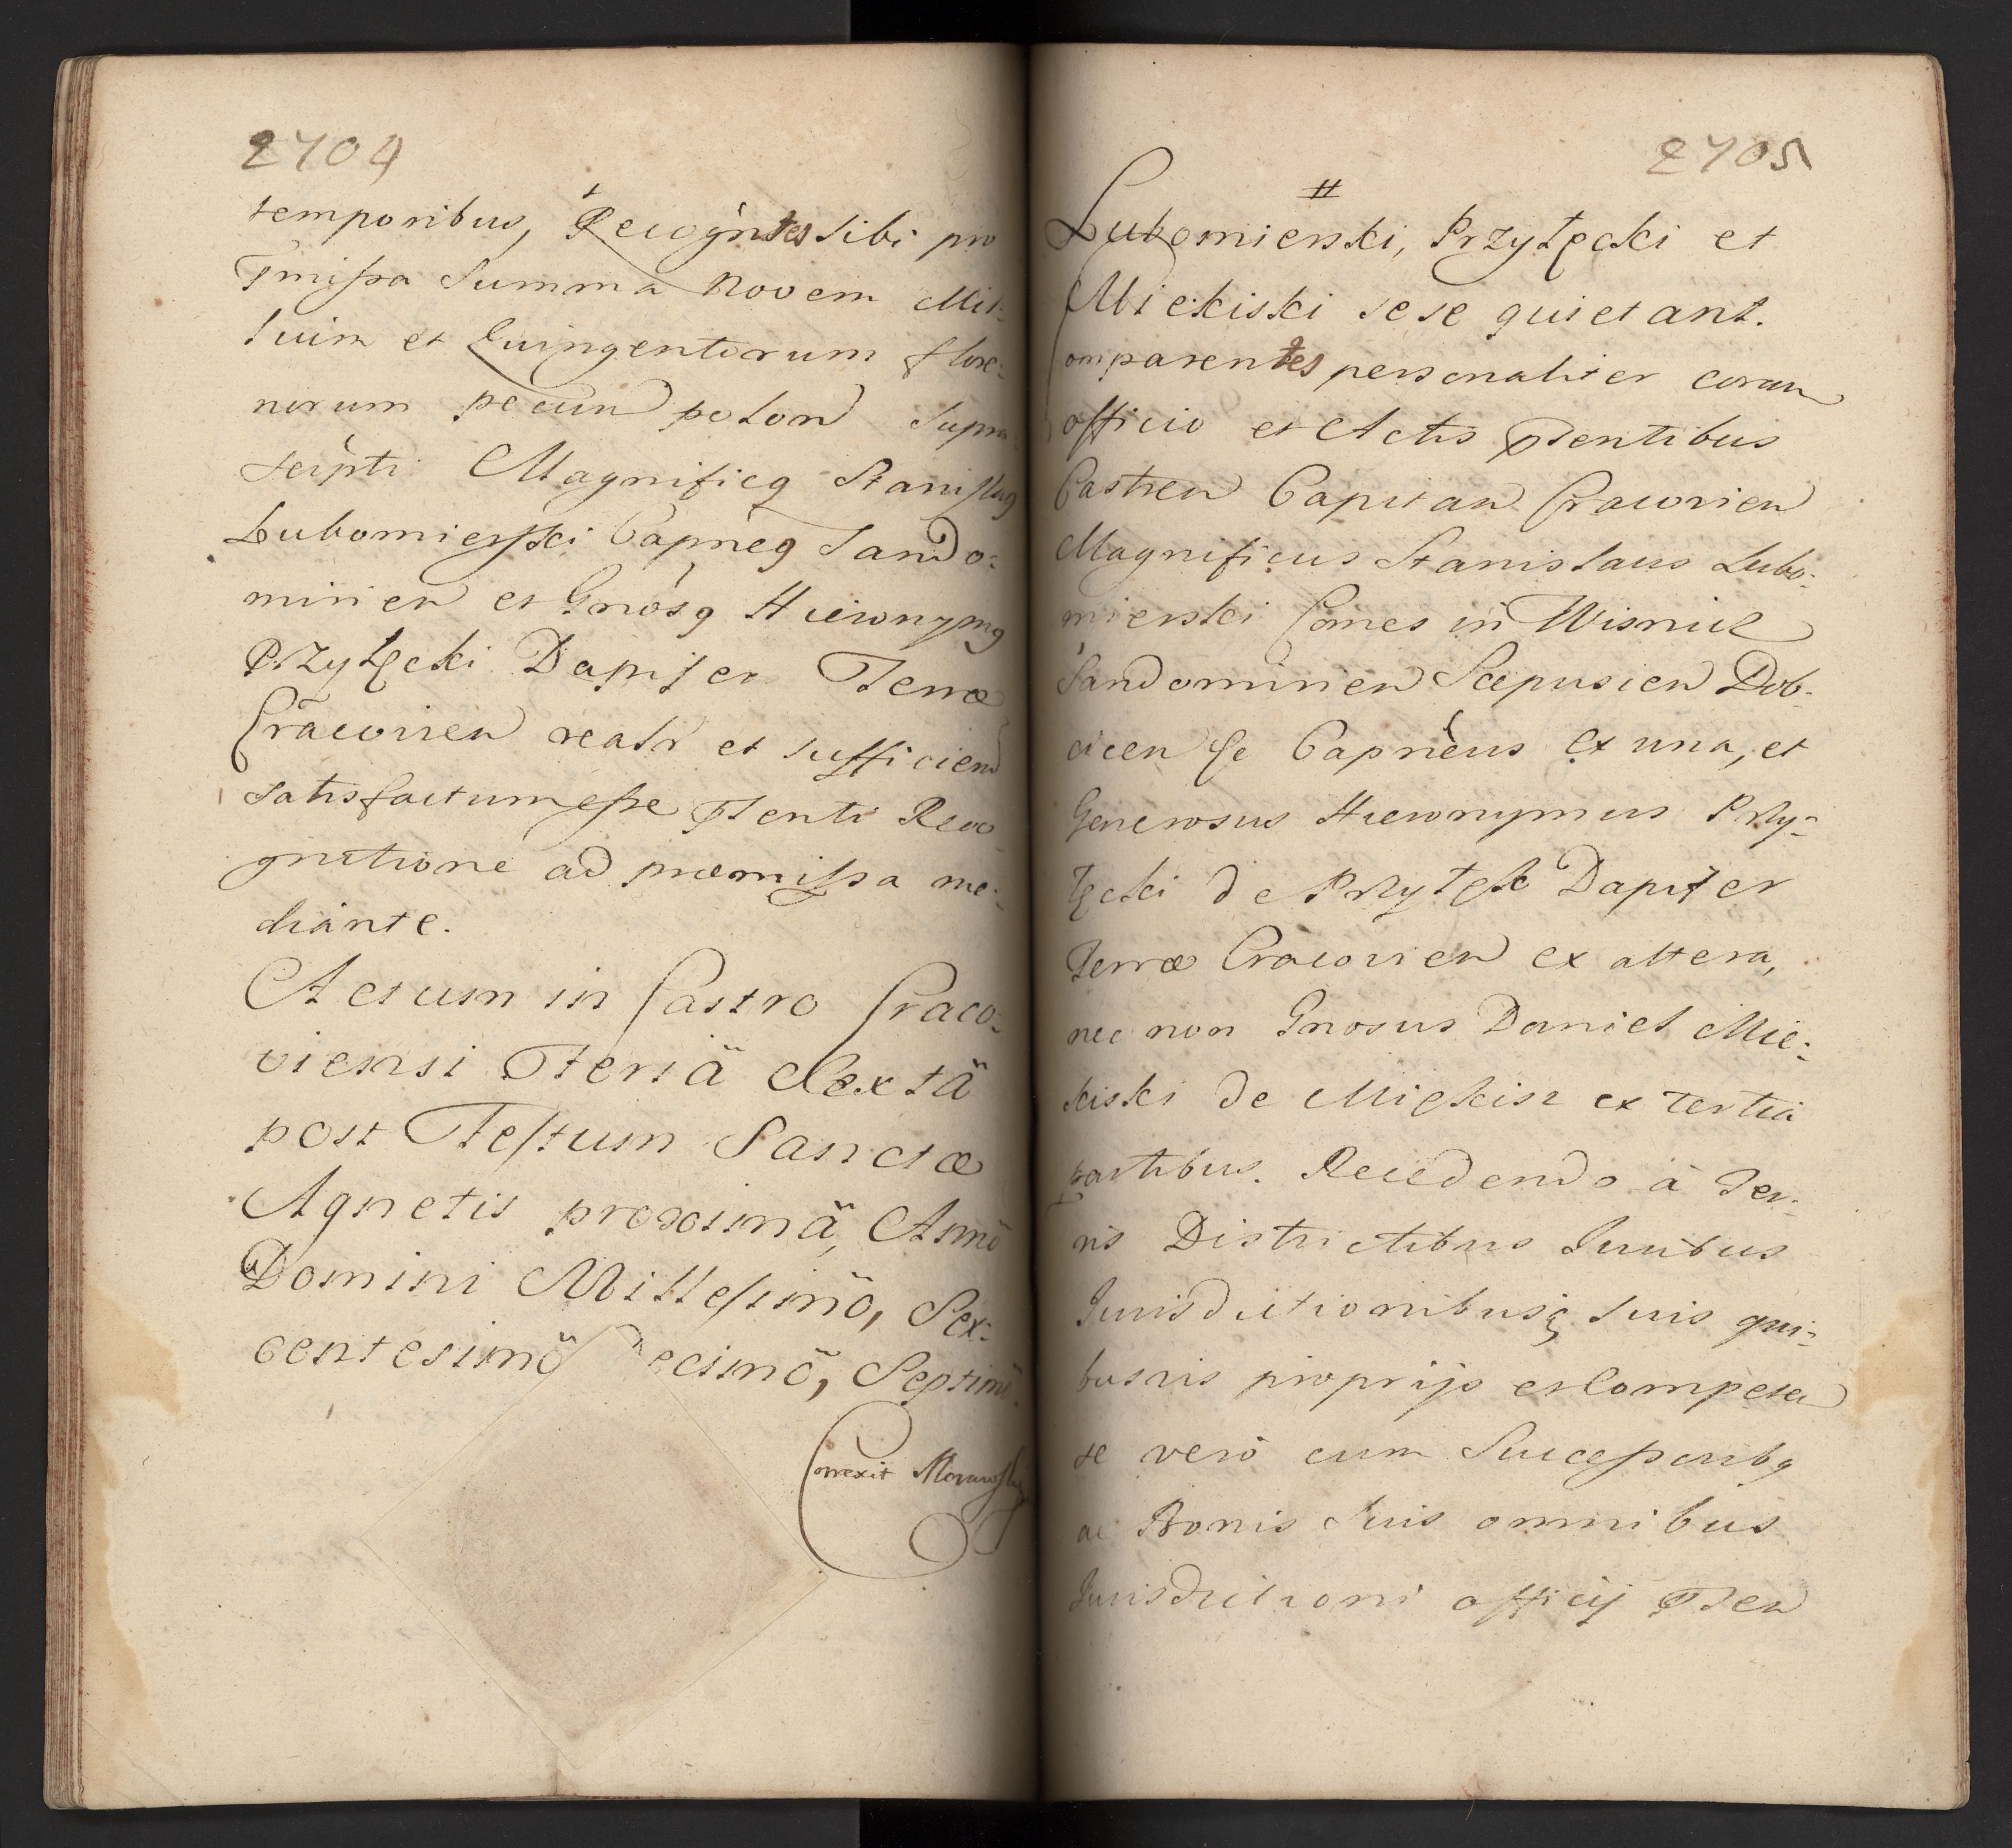 2704
temporibus, Recogntes sibi pro
Pmissa Summa Novem Mil-
lium et Quingentorum flore-
norum pecun polon Supra
scripti Magnificq Stanislaq
Lubomierski Capneq Sando-
mirien et Gnosq Hieronymq
Przyłęcki Dapifer Terræ
Cracovien realr et sufficien
satisfactum esse Psenti Reco
gnitione ad præmissa me-
diante.
Actum in Castro Craco-
viensi Feriä Sextä
post Festum Sanctæ
Agnetis proximä, Anno
Domini Millesimö, Sex-
centesimö Decimö, Septimö.
Correxit Morawsky
2705
#
Lubomierski, Przyłęcki et
Miekiski sese quietant.
Comparentes personaliter coram
officio et Actis Psentibus
Castren Capitan Cracovien
Magnificus Stanislaus Lubo-
mierski Comes in Wisnic
Sandomirien Scepusien Dob-
cicen Se Capneus ex una, et
Generosus Hieronymus Przy-
łęcki de Przyłęk Dapifer
Terræ Cracovien ex altera,
nec non Gnosus Daniel Mie-
kiski de Miękisz ex tertia
partibus. Recedendo à Ter-
ris Districtibus Iuribus
Iurisdictionibusq suis qui-
busvis proprijs et Competen
se verò cum Successoribq
ac Bonis suis omnibus
Iurisdictioni officij Psen